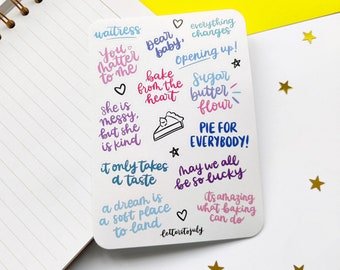 waitress
everything
changes
Dear
baby,
You
matter
to me
opening up!
bake
from the
heart
sugar
butter
flour
she is
messy,
but she
is kind
PIE FOR
EVERYBODY!
it only takes
a taste
may we all
be so lucky
a dream is
a soft place
to land
its amazing
what baking
can do